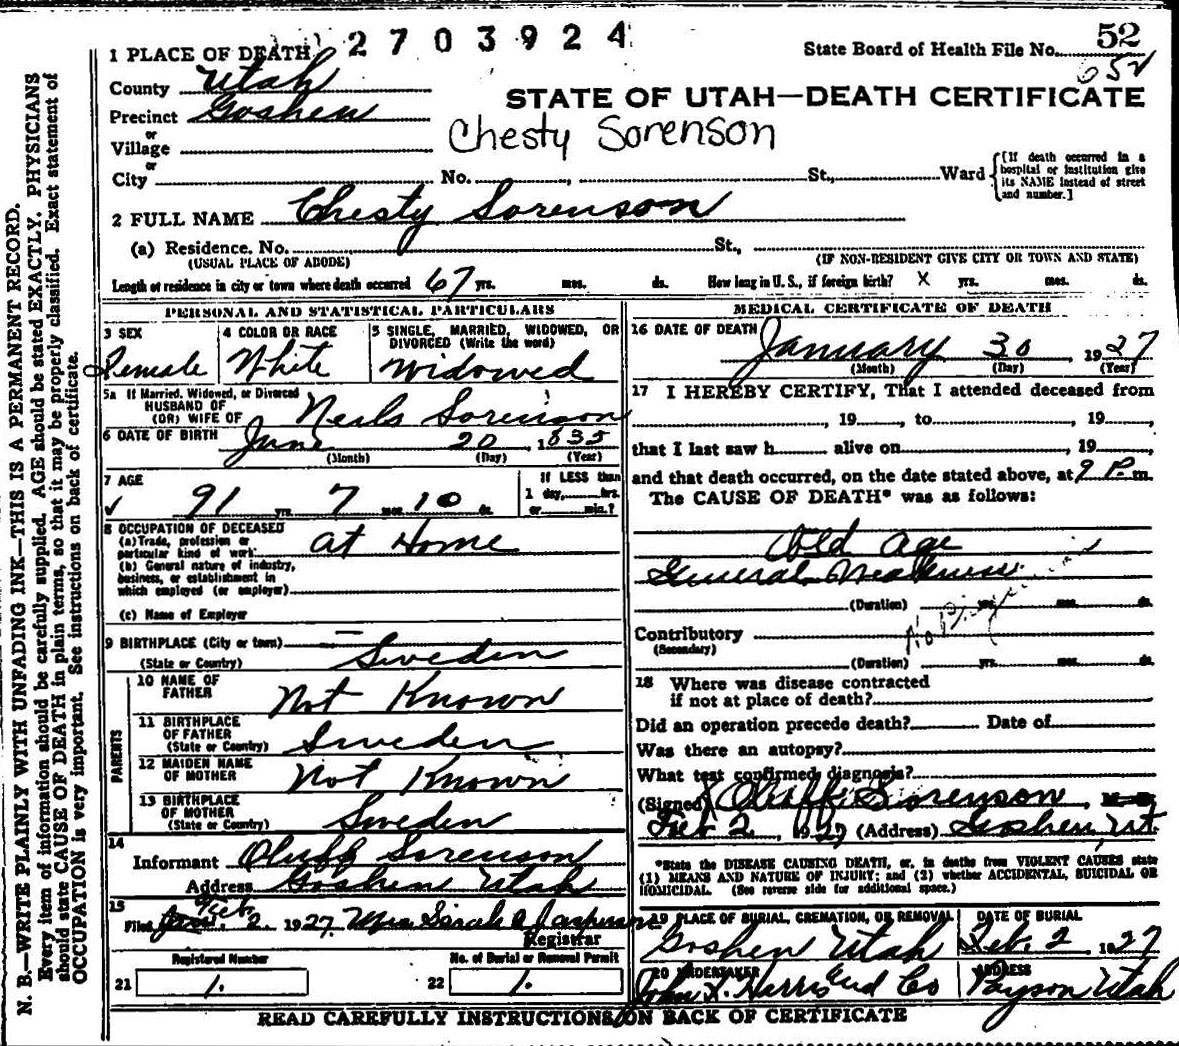 2703924
52
1 PLACE OF DEATH
State Board of Health File No.
052
County Utah
STATE OF UTAH—DEATH CERTIFICATE
Precinct Goshen
or
Village
Chesty Sorenson
or
City No. , St., Ward
[If death occurred in a hospital or institution give its NAME instead of street and number.]
2 FULL NAME Chesty Sorenson
(a) Residence. No. St.,
(USUAL PLACE OF ABODE) (IF NON-RESIDENT GIVE CITY OR TOWN AND STATE)
Length of residence in city or town where death occurred 67 yrs. mos. ds. How long in U. S., if foreign birth? X yrs. mos. ds.
PERSONAL AND STATISTICAL PARTICULARS
3 SEX
Female
4 COLOR OR RACE
White
5 SINGLE, MARRIED, WIDOWED, OR DIVORCED (Write the word)
Widowed
5a If Married, Widowed, or Divorced
HUSBAND OF
(OR) WIFE OF Neils Sorenson
6 DATE OF BIRTH June 20, 1835
(Month) (Day) (Year)
7 AGE
91 yrs. 7 mos. 10 ds.
If LESS than
1 day, hrs.
or min.?
8 OCCUPATION OF DECEASED
(a) Trade, profession or
particular kind of work at Home
(b) General nature of industry,
business, or establishment in
which employed (or employer)
(c) Name of Employer
9 BIRTHPLACE (City or town)
(State or Country) Sweden
PARENTS
10 NAME OF
FATHER Not Known
11 BIRTHPLACE
OF FATHER
(State or Country) Sweden
12 MAIDEN NAME
OF MOTHER Not Known
13 BIRTHPLACE
OF MOTHER
(State or Country) Sweden
14
Informant Oluff Sorenson
Address Goshen Utah
15
Filed Feb. 2 1927 Mrs Sarah A
Registrar
Registered Number
21 1.
No. of Burial or Removal Permit
22 1.
MEDICAL CERTIFICATE OF DEATH
16 DATE OF DEATH
January 30, 1927
(Month) (Day) (Year)
17 I HEREBY CERTIFY, That I attended deceased from
, 19 , to , 19 ,
that I last saw h alive on , 19 ,
and that death occurred, on the date stated above, at 9 P. m.
The CAUSE OF DEATH* was as follows:
Old age
General Weakness
(Duration) yrs. mos. ds.
No
Contributory
(Secondary)
(Duration) yrs. mos. ds.
18 Where was disease contracted
if not at place of death?
Did an operation precede death? Date of
Was there an autopsy?
What test confirmed diagnosis?
(Signed) Oluff Sorenson, M. D.
Feb 2, 1927 (Address) Goshen Ut.
*State the DISEASE CAUSING DEATH, or, in deaths from VIOLENT CAUSES state
(1) MEANS AND NATURE OF INJURY; and (2) whether ACCIDENTAL, SUICIDAL OR
HOMICIDAL. (See reverse side for additional space.)
19 PLACE OF BURIAL, CREMATION, OR REMOVAL
Goshen Utah
DATE OF BURIAL
Feb. 2 1927
20 UNDERTAKER
John L. Harris Und Co
ADDRESS
Payson Utah
READ CAREFULLY INSTRUCTIONS ON BACK OF CERTIFICATE
N. B.—WRITE PLAINLY WITH UNFADING INK—THIS IS A PERMANENT RECORD.
Every item of information should be carefully supplied. AGE should be stated EXACTLY. PHYSICIANS
should state CAUSE OF DEATH in plain terms, so that it may be properly classified. Exact statement of
OCCUPATION is very important. See instructions on back of certificate.